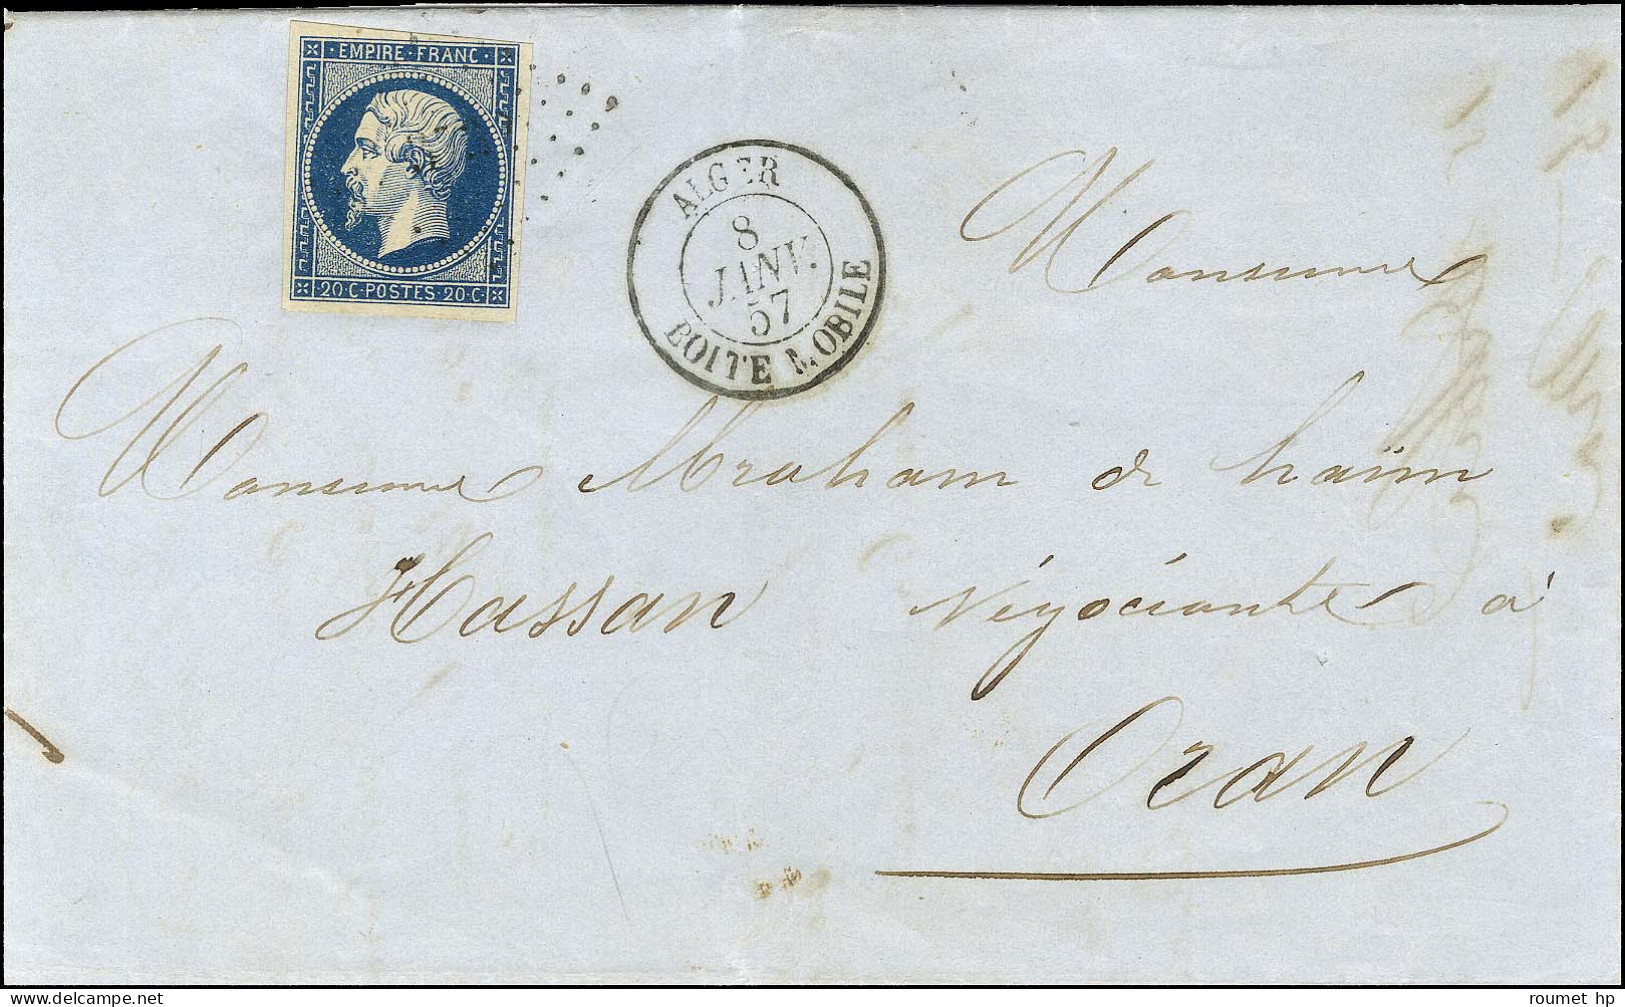 EMPIRE · FRANC ·
20 · C · POSTES · 20 · C ·
ALGER
8
JANV.
57
BOITE MOBILE
Monsieur
Monsieur Abraham de haïm
Hassan Négociante à
Oran
delcampe.net
roumet hp